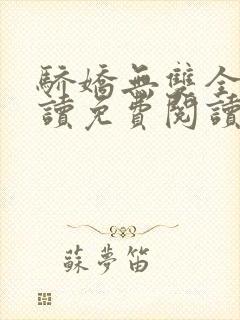 驕嬌無雙全
讀免費閱讀
蘇夢笛